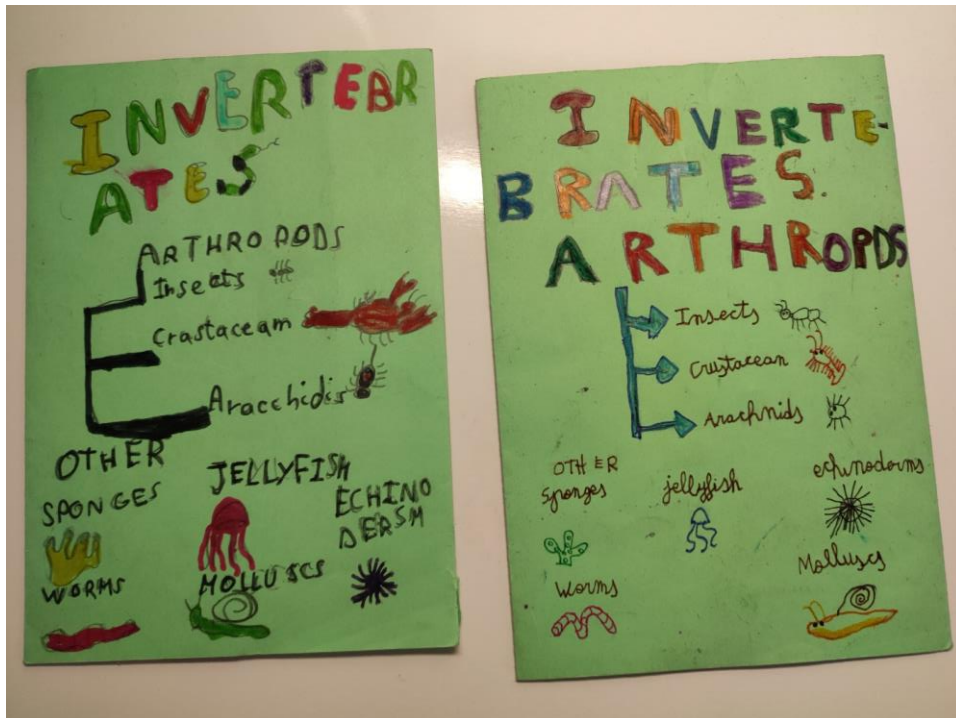 INVERTEBR
ATES
ARTHROPODS
Insects
Crastaceam
Aracchidis
OTHER
SPONGES
JELLYFISH
ECHINO
DERSM
WORMS
MOLLUSCS
INVERTE-
BRATES.
ARTHROPDS
Insects
Crustacean
Arachnids
OTHER
Sponges
jellyfish
echinodorms
Worms
Molluscs